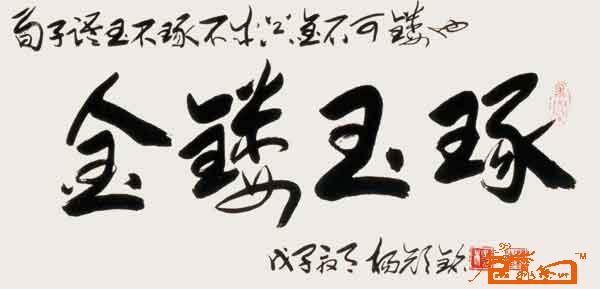 荀子语玉不琢不金不可镂也
金镂玉琢
戊子杨